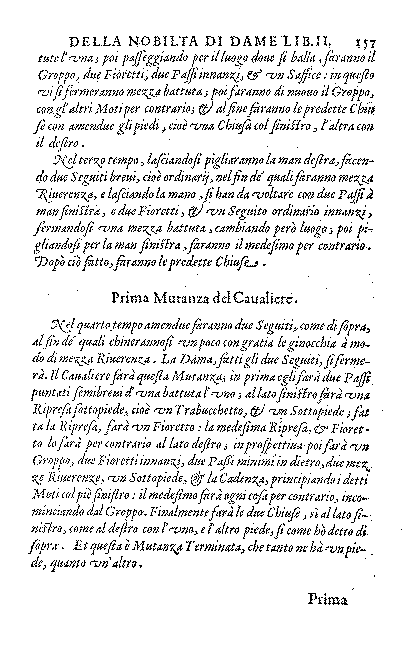 DELLA NOBILTA DI DAME LIB. II. 157
tute l'vna; poi passeggiando per il luogo doue si balla, faranno il
Groppo, due Fioretti, due Passi innanzi, & vn Saffice: in questo
vi si fermeranno mezza battuta; poi faranno di nuouo il Groppo,
con gl'altri Moti per contrario; & al fine faranno le predette Chiu
se con amendue gli piedi, cioè vna Chiusa col sinistro, l'altra con
il destro.
Nel terzo tempo, lasciandosi pigliaranno la man destra, facen-
do due Seguiti breui, cioè ordinarij, nel fin de' quali faranno mezza
Riuerenza, e lasciando la mano, si han da voltare con due Passi à
man sinistra, e due Fioretti, & vn Seguito ordinario innanzi,
fermandosi vna mezza battuta, cambiando però luogo; poi pi-
gliandosi per la man sinistra, faranno il medesimo per contrario.
Dopò ciò fatto, faranno le predette Chiuse.
Prima Mutanza del Caualiere.
Nel quarto tempo amendue faranno due Seguiti, come di sopra,
al fin de' quali chinerannosi vn poco con gratia le ginocchia à mo-
do di mezza Riuerenza. La Dama, fatti gli due Seguiti, si ferme-
rà. Il Caualiere farà questa Mutanza; in prima egli farà due Passi
puntati semibreui d'vna battuta l'vno; al lato sinistro farà vna
Ripresa sottopiede, cioè vn Trabucchetto, & vn Sottopiede; fat
ta la Ripresa, farà vn Fioretto: la medesima Ripresa, & Fioret-
to lo farà per contrario al lato destro; in prospettiua poi farà vn
Groppo, due Fioretti innanzi, due Passi minimi in dietro, due mez
ze Riuerenze, vn Sottopiede, & la Cadenza, principiando i detti
Moti col piè sinistro: il medesimo farà ogni cosa per contrario, inco-
minciando dal Groppo. Finalmente farà le due Chiuse, sì al lato si-
nistro, come al destro con l'vno, e l'altro piede, si come hò detto di
sopra. Et questa è Mutanza Terminata, che tanto ne hà vn pie-
de, quanto vn'altro.
Prima